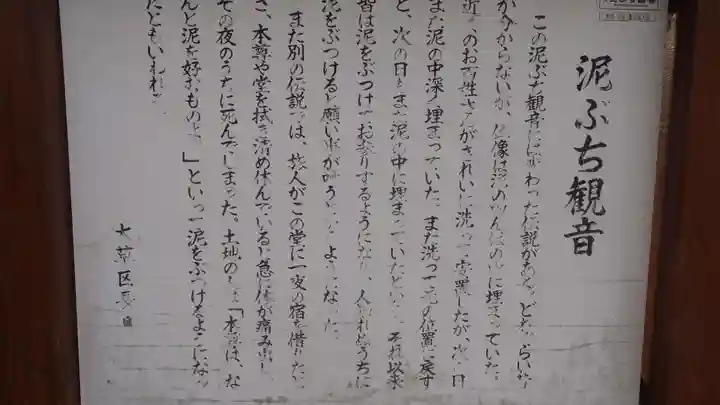 泥ぶち観音
この泥ぶち観音にはかわった伝説がある。どれくらい昔
かわからないが、仏像は泥の中に埋まっていた。
近くのお百姓さんがきれいに洗って安置したが、次の日
また泥の中深く埋まっていた。また洗って元の位置に戻す
と、次の日もまた泥の中に埋まっていたという。それ以来
皆は泥をぶつけてお参りするようになり、人しれぬうちに
泥をぶつけると願い事が叶うというようになった。
また別の伝説では、旅人がこの堂に一夜の宿を借りた
さ、本尊や堂を拭き清め休んでいると急に体が痛み出し
その夜のうちに死んでしまった。土地の人は「本尊は、な
んと泥を好むものよ。」といって泥をぶつけるようになっ
たともいわれ
大草区長